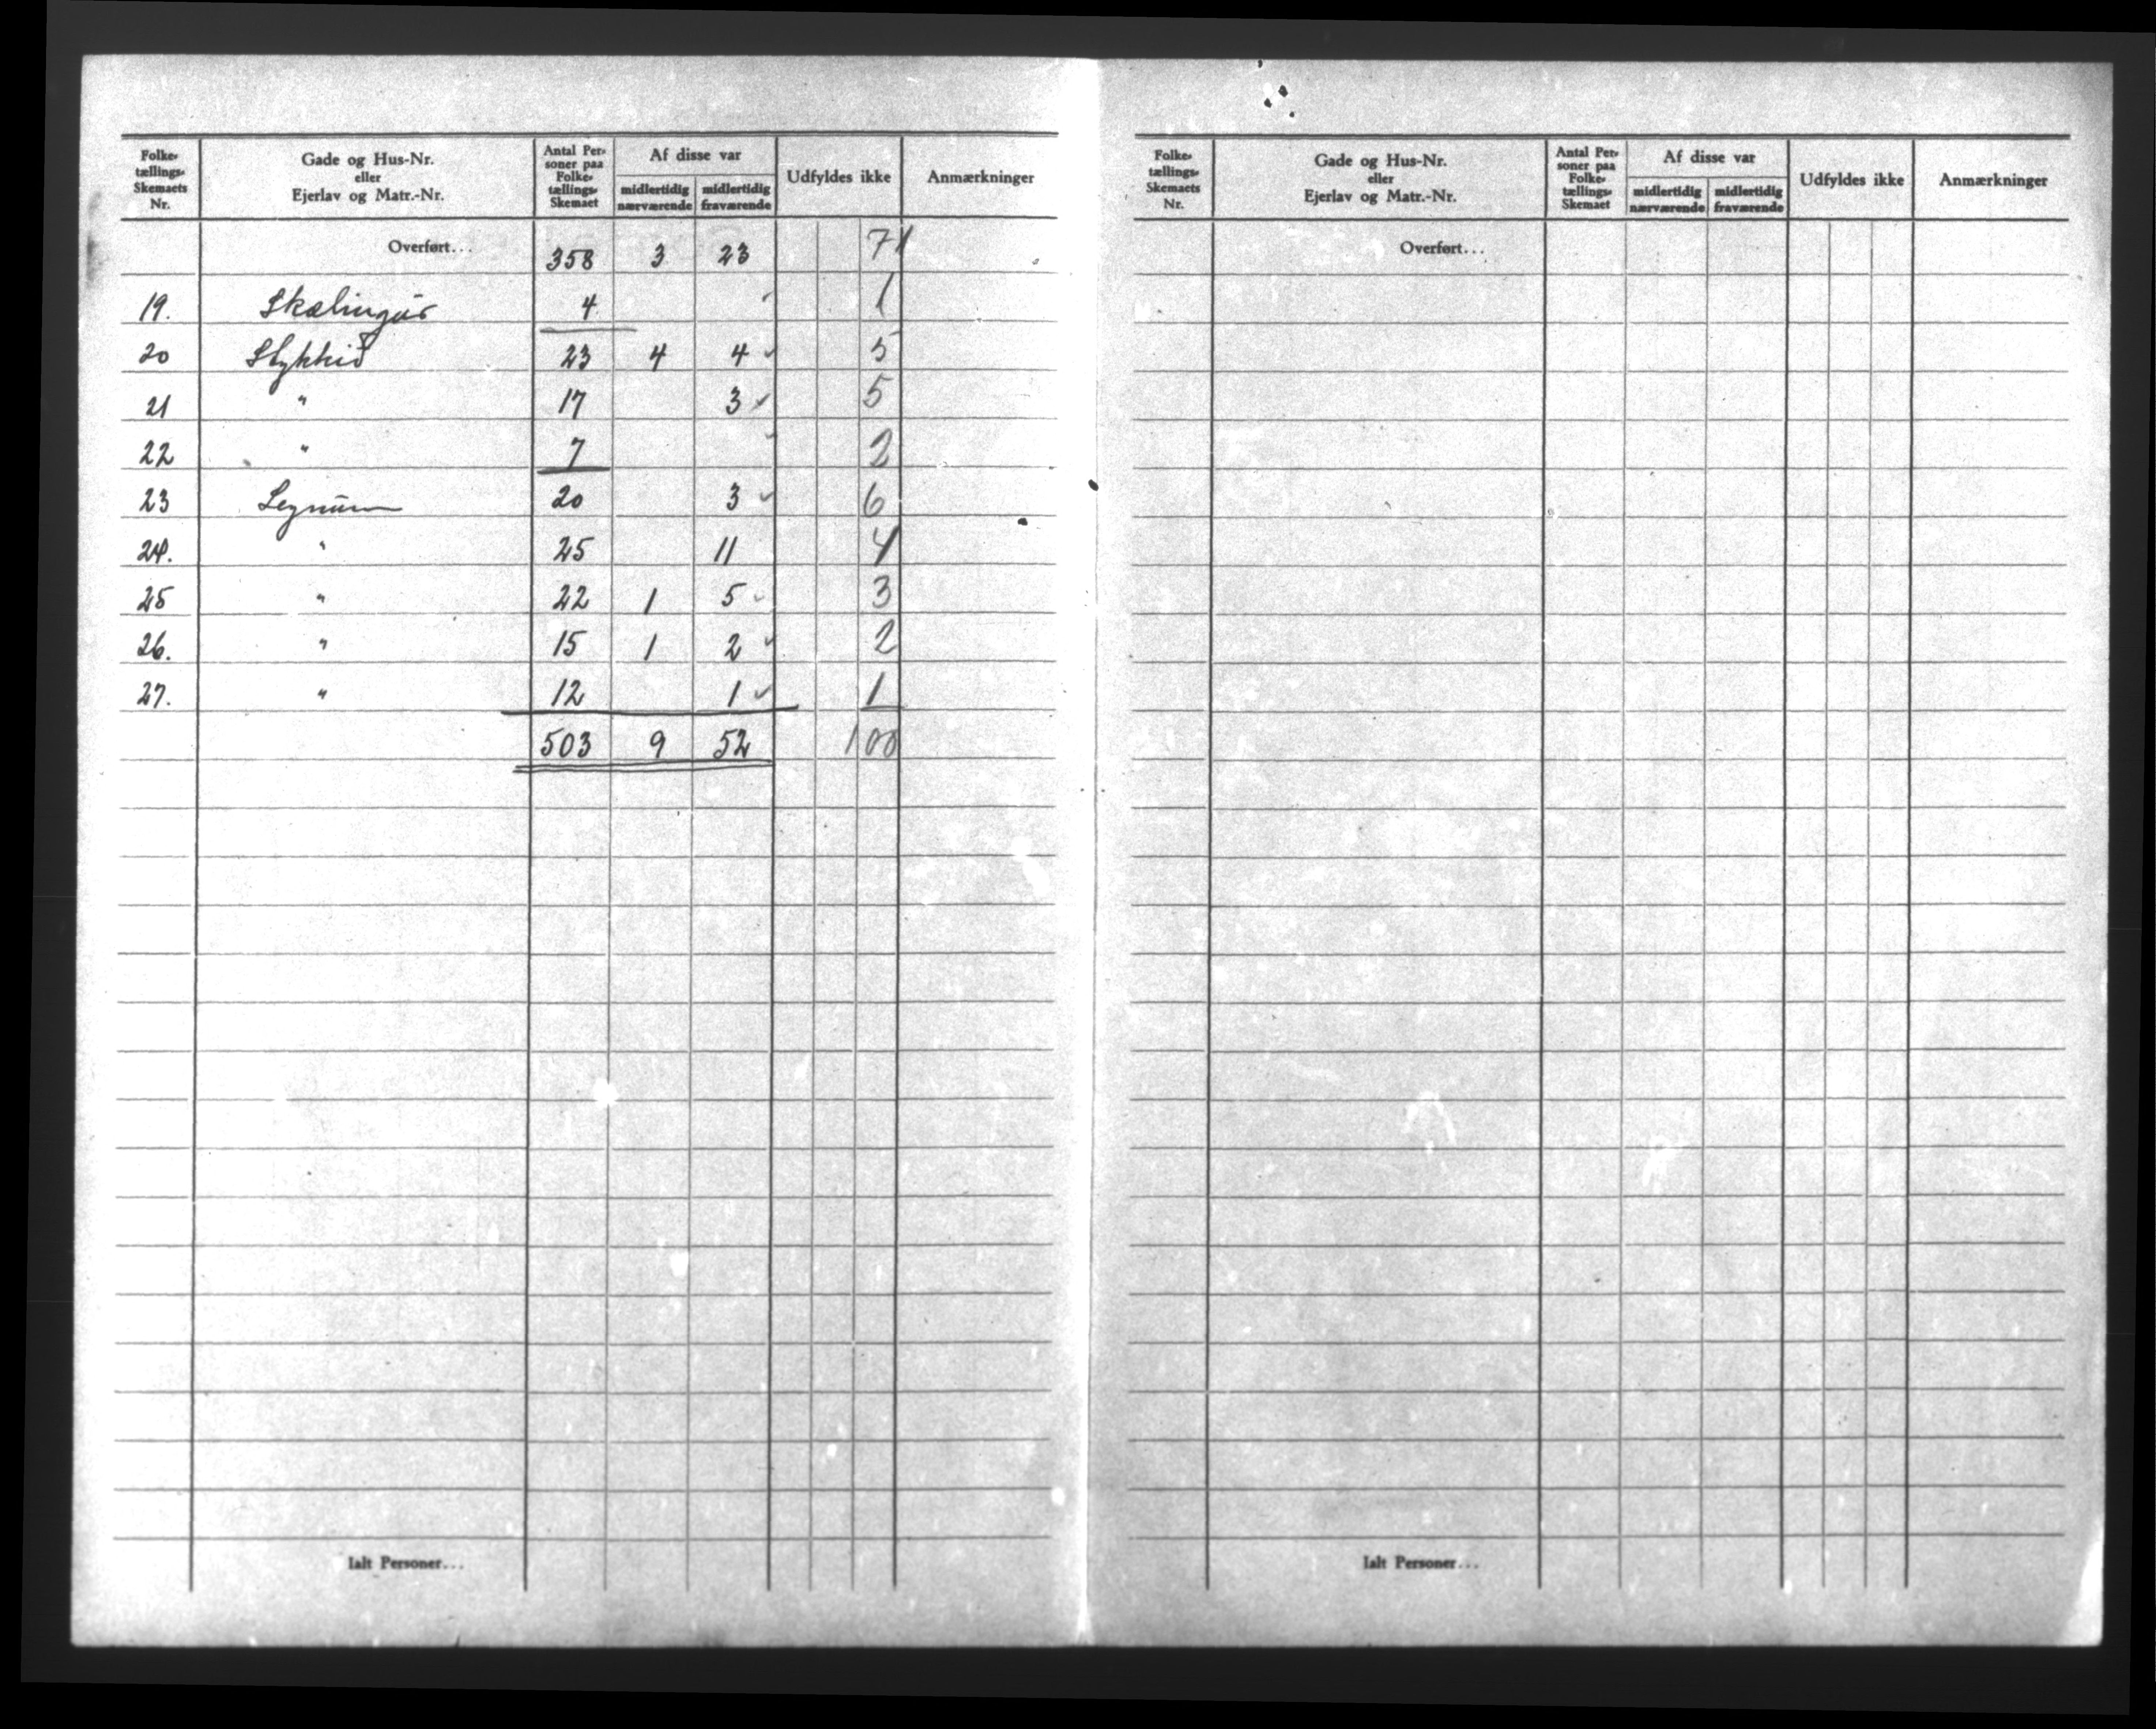 Folketællings-Skemaets Nr. | Gade og Hus-Nr. eller Ejerlav og Matr.-Nr. | Antal Personer paa Folketællings-Skemaet | Af disse var midlertidig nærværende | midlertidig fraværende | Udfyldes ikke | Anmærkninger
Overført... 358 3 23 71
19. Skælingur 4 1
20 Stykkid 23 4 4 ✓ 5
21 " 17 3 ✓ 5
22 " 7 2
23 Legnum 20 3 ✓ 6
24. " 25 11 4
25 " 22 1 5 ✓ 3
26. " 15 1 2 ✓ 2
27. " 12 1 ✓ 1
503 9 52 100
Ialt Personer...
Folketællings-Skemaets Nr. | Gade og Hus-Nr. eller Ejerlav og Matr.-Nr. | Antal Personer paa Folketællings-Skemaet | Af disse var midlertidig nærværende | midlertidig fraværende | Udfyldes ikke | Anmærkninger
Overført...
Ialt Personer...